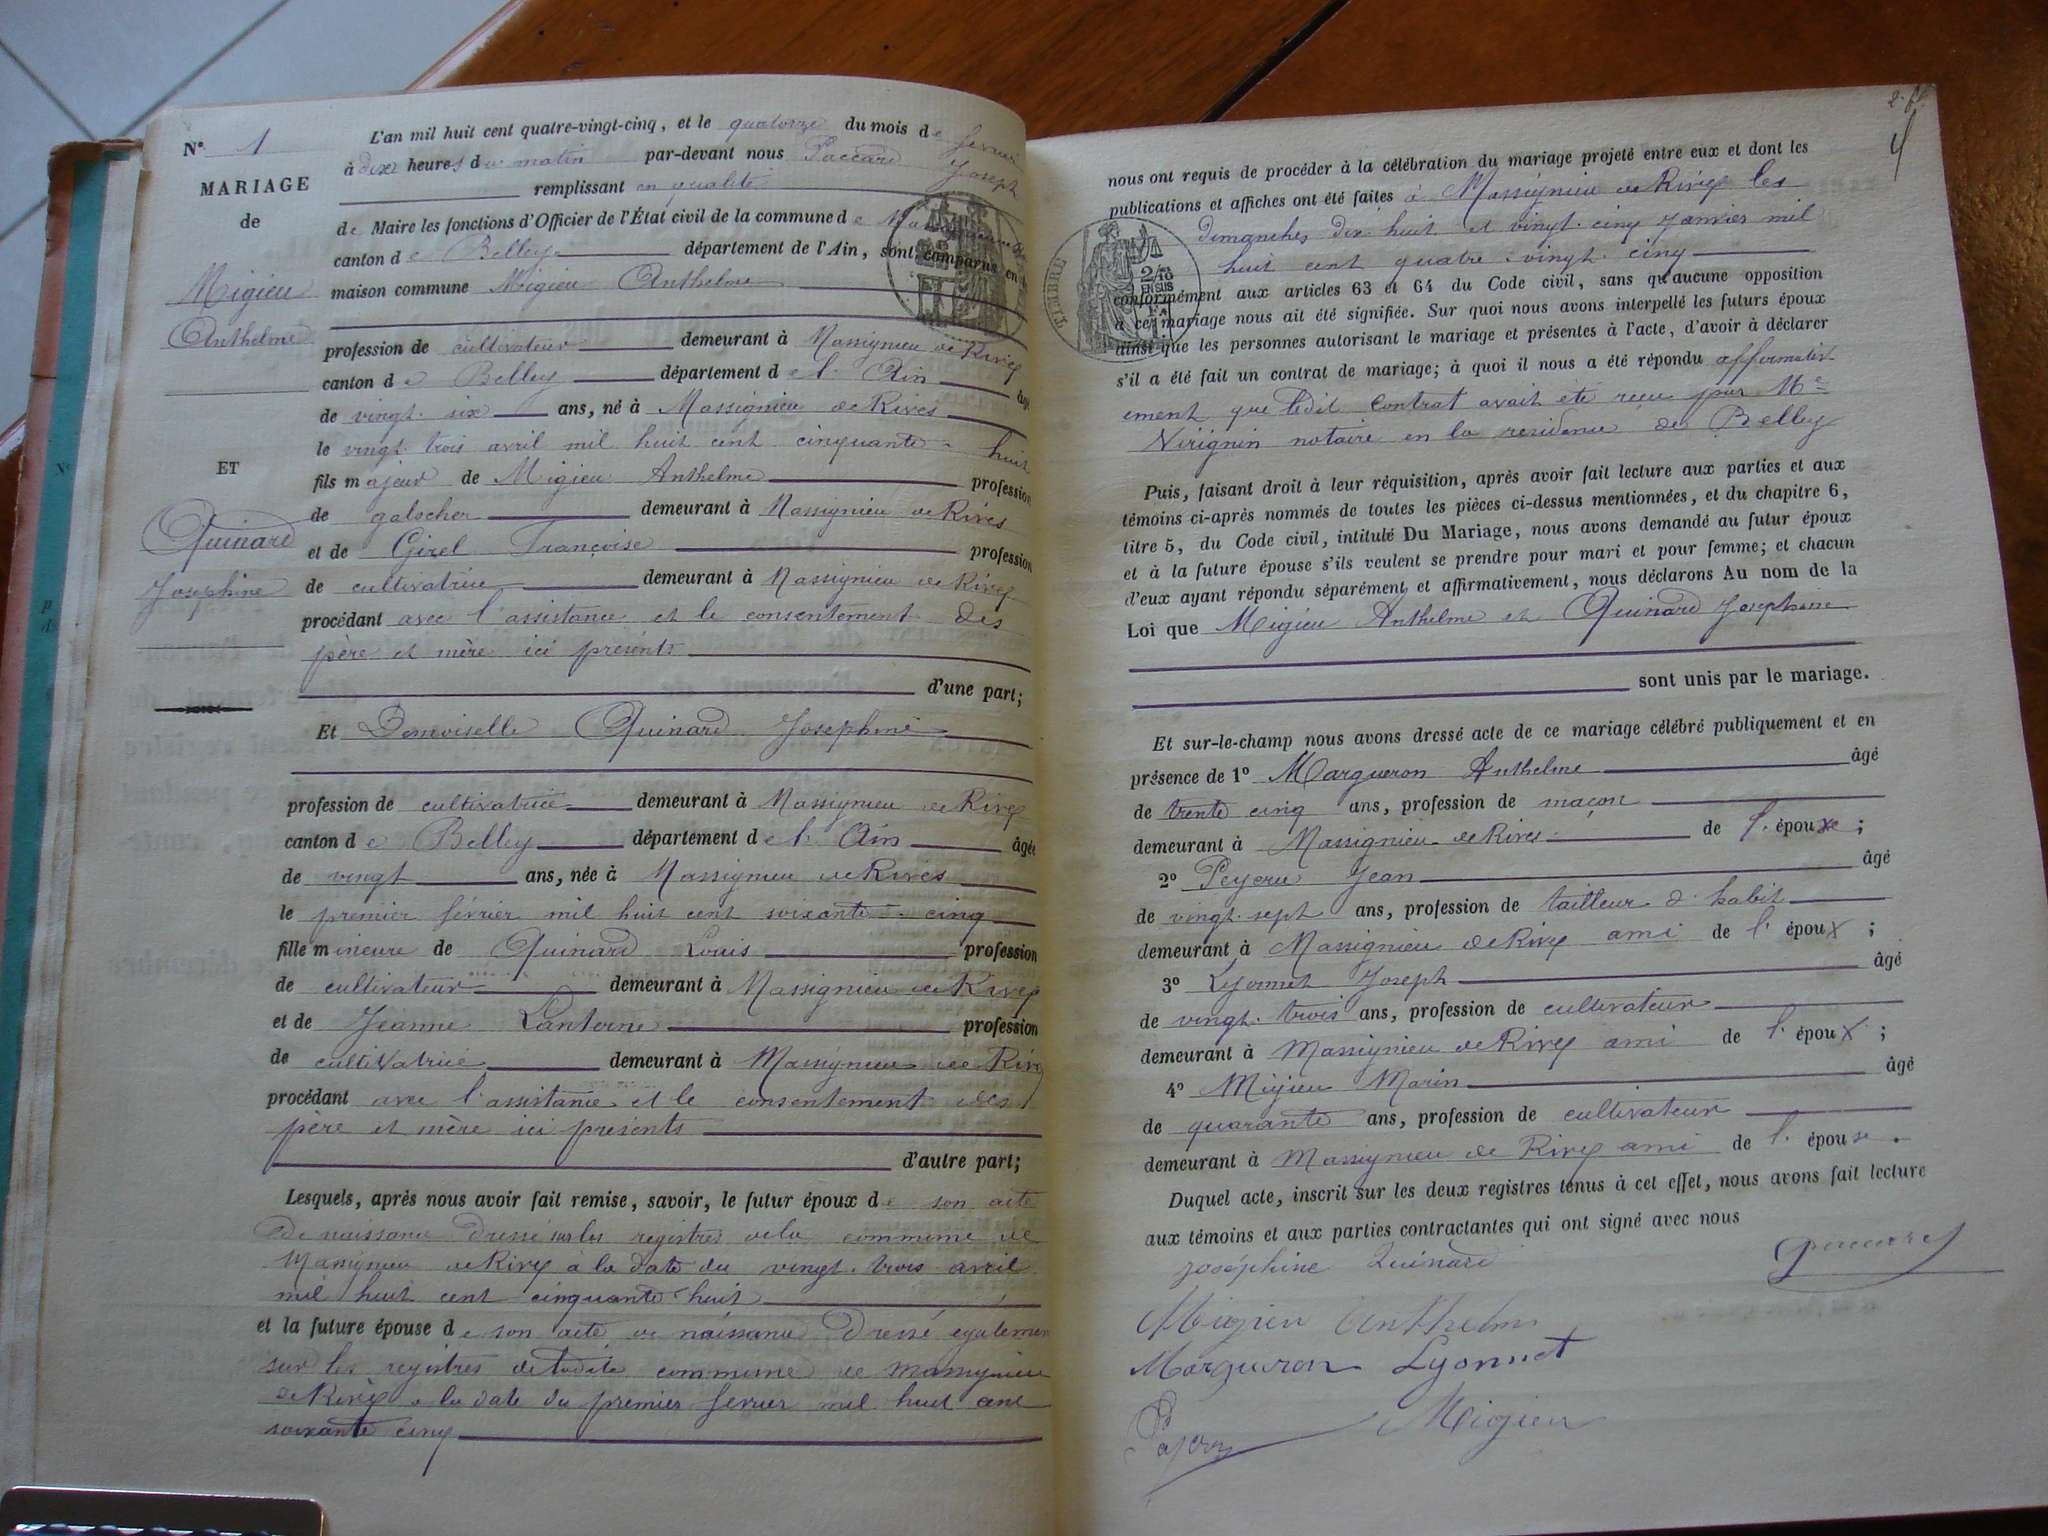 N° 1
MARIAGE
de
Migieu
Anthelme
ET
Quinard
Josephine
L'an mil huit cent quatre-vingt-cinq, et le quatorze du mois de fevrier
à dix heures du matin par-devant nous Paccard Joseph
remplissant en qualité
de Maire les fonctions d'Officier de l'État civil de la commune de
canton de Belley département de l'Ain, sont comparus en
maison commune Migieu Anthelme
profession de cultivateur demeurant à Massignieu de Rives
canton de Belley département de l'Ain âgé
de vingt-six ans, né à Massignieu de Rives
le vingt-trois avril mil huit cent cinquante-huit
fils majeur de Migieu Anthelme profession
de demeurant à Massignieu de Rives
et de Girel Françoise profession
de cultivatrice demeurant à Massignieu de Rives
procédant avec l'assistance et le consentement des
père et mère ici présents
d'une part;
Et Demoiselle Quinard Josephine
profession de cultivatrice demeurant à Massignieu de Rives
canton de Belley département de l'Ain âgée
de vingt ans, née à Massignieu de Rives
le premier février mil huit cent soixante-cinq
fille mineure de Quinard Louis profession
de cultivateur demeurant à Massignieu de Rives
et de Jeanne Lanterne profession
de cultivatrice demeurant à Massignieu de Rives
procédant avec l'assistance et le consentement des
père et mère ici présents
d'autre part;
Lesquels, après nous avoir fait remise, savoir, le futur époux de son acte
de naissance dressé sur les registres de la commune de
Massignieu de Rives à la date du vingt-trois avril
mil huit cent cinquante-huit
et la future épouse de son acte de naissance dressé egalement
sur les registres de ladite commune de Massignieu
de Rives a la date du premier fevrier mil huit cent
soixante cinq
2. f.
nous ont requis de procéder à la célébration du mariage projeté entre eux et dont les
publications et affiches ont été faites à Massignieu de Rives les
dimanches dix huit et vingt-cinq Janvier mil
huit cent quatre-vingt-cinq
TIMBRE
2/10
EN SUS
conformément aux articles 63 et 64 du Code civil, sans qu'aucune opposition
à ce mariage nous ait été signifiée. Sur quoi nous avons interpellé les futurs époux
ainsi que les personnes autorisant le mariage et présentes à l'acte, d'avoir à déclarer
s'il a été fait un contrat de mariage; à quoi il nous a été répondu affirmativ
ement que ledit contrat avait été reçu par Me
Virignin notaire en la residence de Belley
Puis, faisant droit à leur réquisition, après avoir fait lecture aux parties et aux
témoins ci-après nommés de toutes les pièces ci-dessus mentionnées, et du chapitre 6,
titre 5, du Code civil, intitulé Du Mariage, nous avons demandé au futur époux
et à la future épouse s'ils veulent se prendre pour mari et pour femme; et chacun
d'eux ayant répondu séparément et affirmativement, nous déclarons Au nom de la
Loi que Migieu Anthelme et Quinard Josephine
sont unis par le mariage.
Et sur-le-champ nous avons dressé acte de ce mariage célébré publiquement et en
présence de 1° Margueron Anthelme âgé
de trente cinq ans, profession de maçon
demeurant à Massignieu de Rives de l'épouxe;
2° Peyeru Jean âgé
de vingt-sept ans, profession de tailleur d'habit
demeurant à Massignieu de Rives ami de l'époux;
3° Lyonnet Joseph âgé
de vingt-trois ans, profession de cultivateur
demeurant à Massignieu de Rives ami de l'époux;
4° Migieu Marin âgé
de quarante ans, profession de cultivateur
demeurant à Massignieu de Rives ami de l'épouse.
Duquel acte, inscrit sur les deux registres tenus à cet effet, nous avons fait lecture
aux témoins et aux parties contractantes qui ont signé avec nous
Joséphine Quinard Paccard J
Migieu Anthelme
Margueron Lyonnet
Migieu